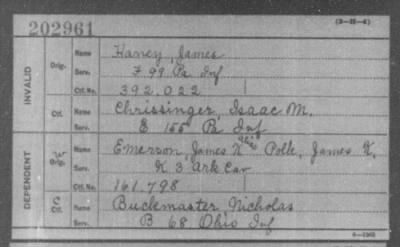 202961
(3-25-4)
INVALID
Orig.
Name Haney, James
Serv. F 99 Pa Inf
Ctf. No. 392.022
Ctf.
Name Chrissinger, Isaac M.
Serv. E 155 Pa Inf
DEPENDENT
W
Orig.
Name Emerson, James K alias Polk, James K.
Serv. K. 3 Ark Cav
Ctf. No. 161.798
C
Ctf.
Name Buckmaster Nicholas
Serv. B 68 Ohio Inf